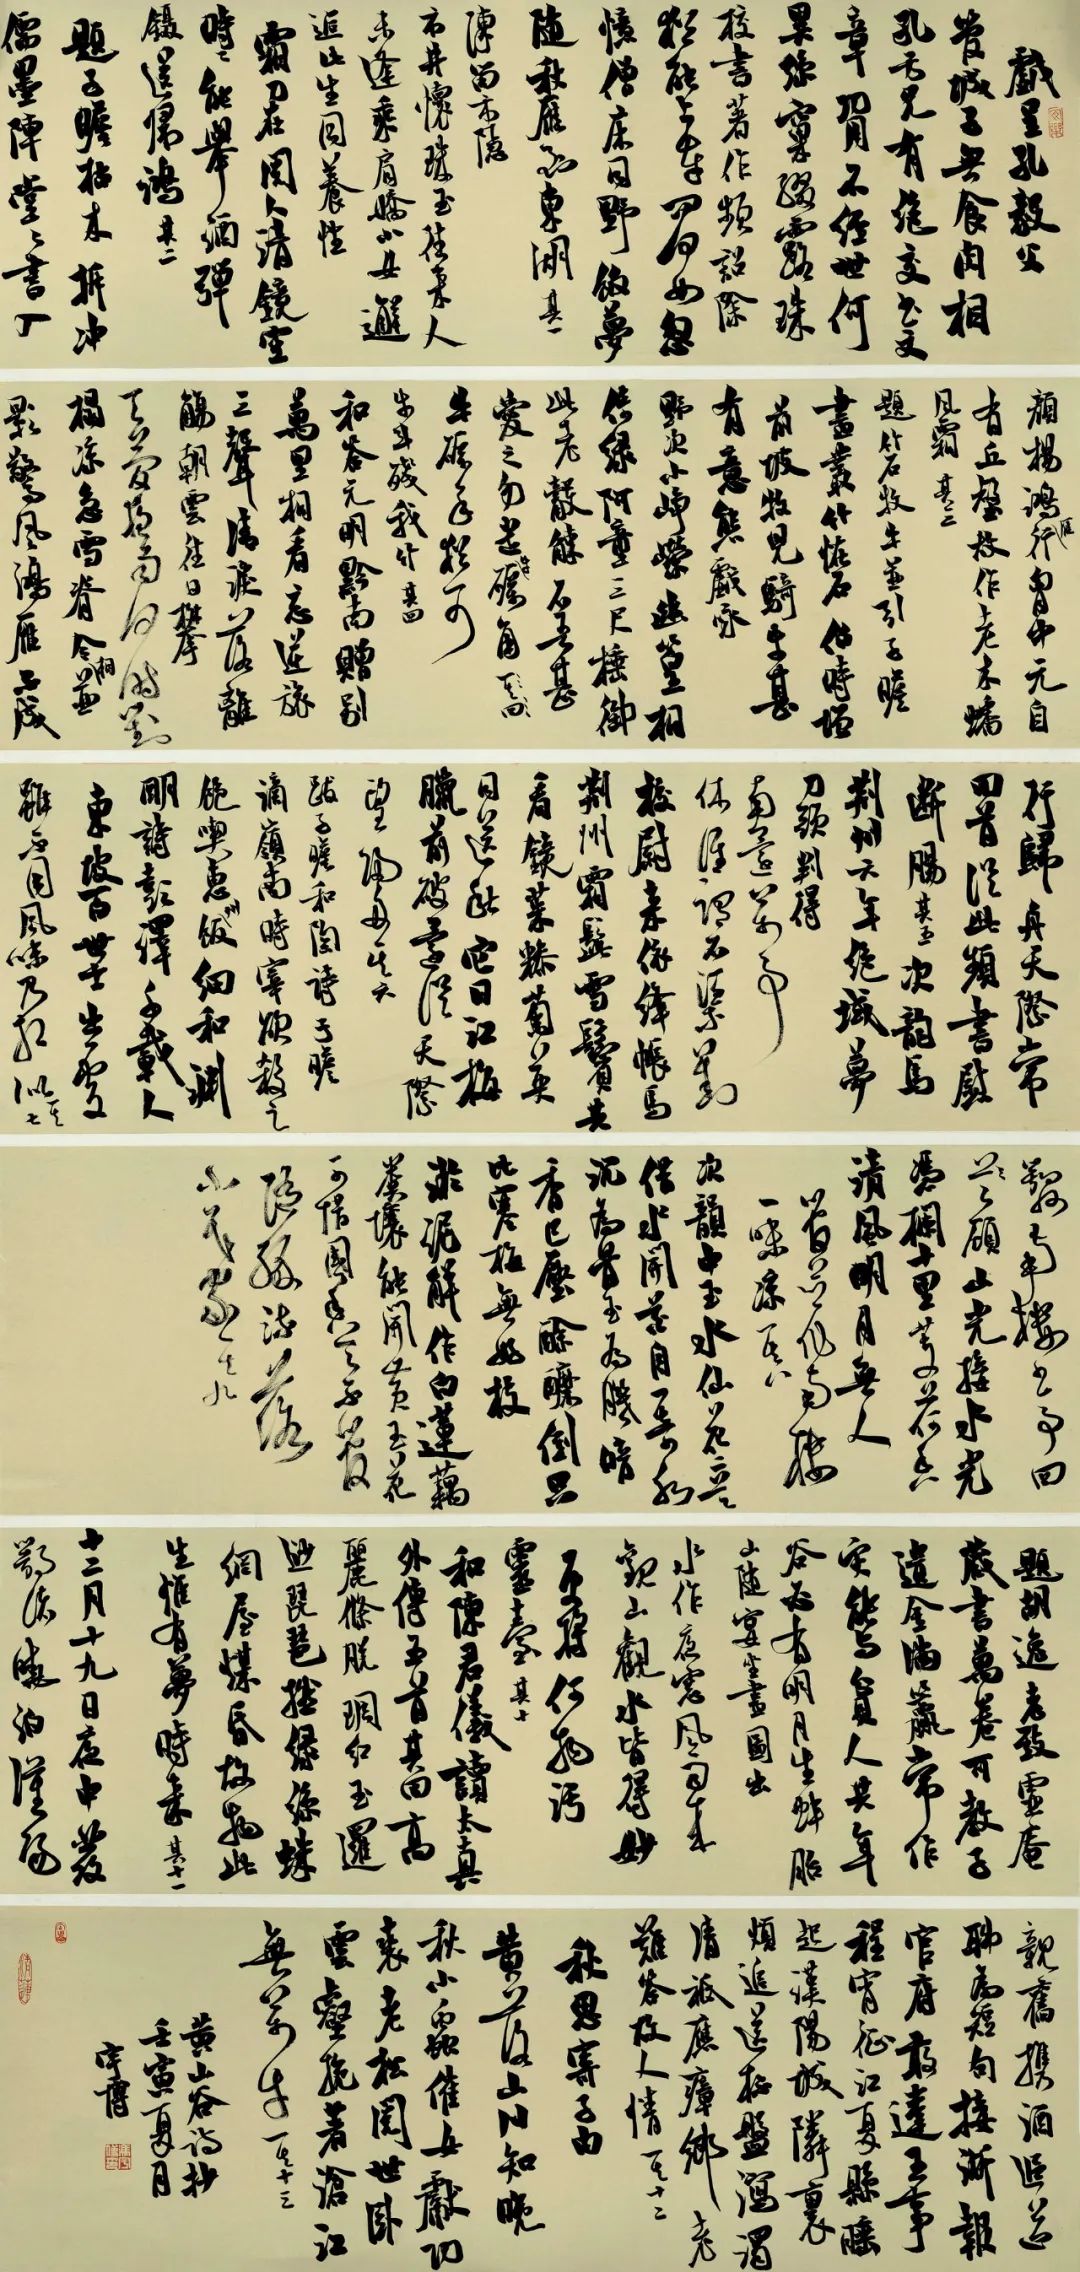 戲呈孔毅父
管城子無食肉相
孔方兄有絕交書文
章功用不經世何
異絲窠綴露珠
校書著作頻詔除
猶能上車問何如忽
憶僧床同野飯夢
隨秋雁到東湖 其一
陳留市隱
市井懷珠玉往來人
未逢乘肩嬌小女邂
逅此生同養性
霜刀在閱人清鏡空
時〻能舉酒彈
鑷送歸鴻 其二
題子瞻枯木 折沖
儒墨陣堂〻書入
顏楊鴻雁行胸中元自
有丘壑故作老木蟠
風霜 其三
題竹石牧牛並引 子瞻
畫叢竹怪石伯時增
前坡牧兒騎牛甚
有意態戲詠
野次小崢嶸幽篁相
倚綠阿童三尺棰御
此老觳觫石吾甚
愛之勿遣牛礪角
牛礪角猶可
牛鬥殘我竹 其四
和答元明黔南贈別
萬里相看忘逆旅
三聲清淚落離
觴朝雲往日攀
天夢夜雨何時對
榻涼急雪脊令相並
影驚風鴻雁不成
行歸舟天際常
回首從此頻書慰
斷腸 其五 次韻馬
荊州六年絕域夢
刀頭判得
南還萬事
休誰謂石渠劉
校尉來依絳帳馬
荊州霜髭雪鬢共
看鏡茱糝菊英
同送秋它日江梅
臘前破還從天際
望歸舟 其六
跋子瞻和陶詩 子瞻
謫嶺南時宰欲殺之
飽喫惠州飯細和淵
明詩彭澤千載人
東坡百世士出處
雖不同風味乃相似 其七
鄂州南樓書事 四
顧山光接水光
憑欄十里芰荷香
清風明月無人
管並作南樓
一味涼 其八
次韻中玉水仙花二首
借水開花自一奇水
沉為骨玉為肌暗
香已壓酴醾倒只
比寒梅無好枝
淤泥解作白蓮藕
糞壤能開黃玉花
可惜國香天不管
隨緣流落
小民家 其九
題胡逸老致虛庵
藏書萬卷可教子
遺金滿籯常作
災能與貧人共年
谷必有明月生蚌胎
山隨宴坐畫圖出
水作夜窗風雨來
觀山觀水皆得妙
更將何物污
靈臺 其十
和陳君儀讀太真
外傳五首 其四 高
麗條脫琱紅玉邏
逤琵琶撚綠絲蛛
網屋煤昏故物此
生惟有夢時來 其十一
十二月十九日夜中發
鄂渚曉泊漢陽
親舊攜酒追送
聊為短句 接淅報
官府敢違王事
程宵征江夏縣睡
起漢陽城鄰里
煩追送杯盤瀉濁
清祇應瘴鄉老
難答故人情 其十二
秋思寄子由
黃落山川知晚
秋小蟲催女獻功
裘老松閱世臥
雲壑挽著滄江
無萬牛 其十三
黃山谷詩抄
壬寅夏月
宇博